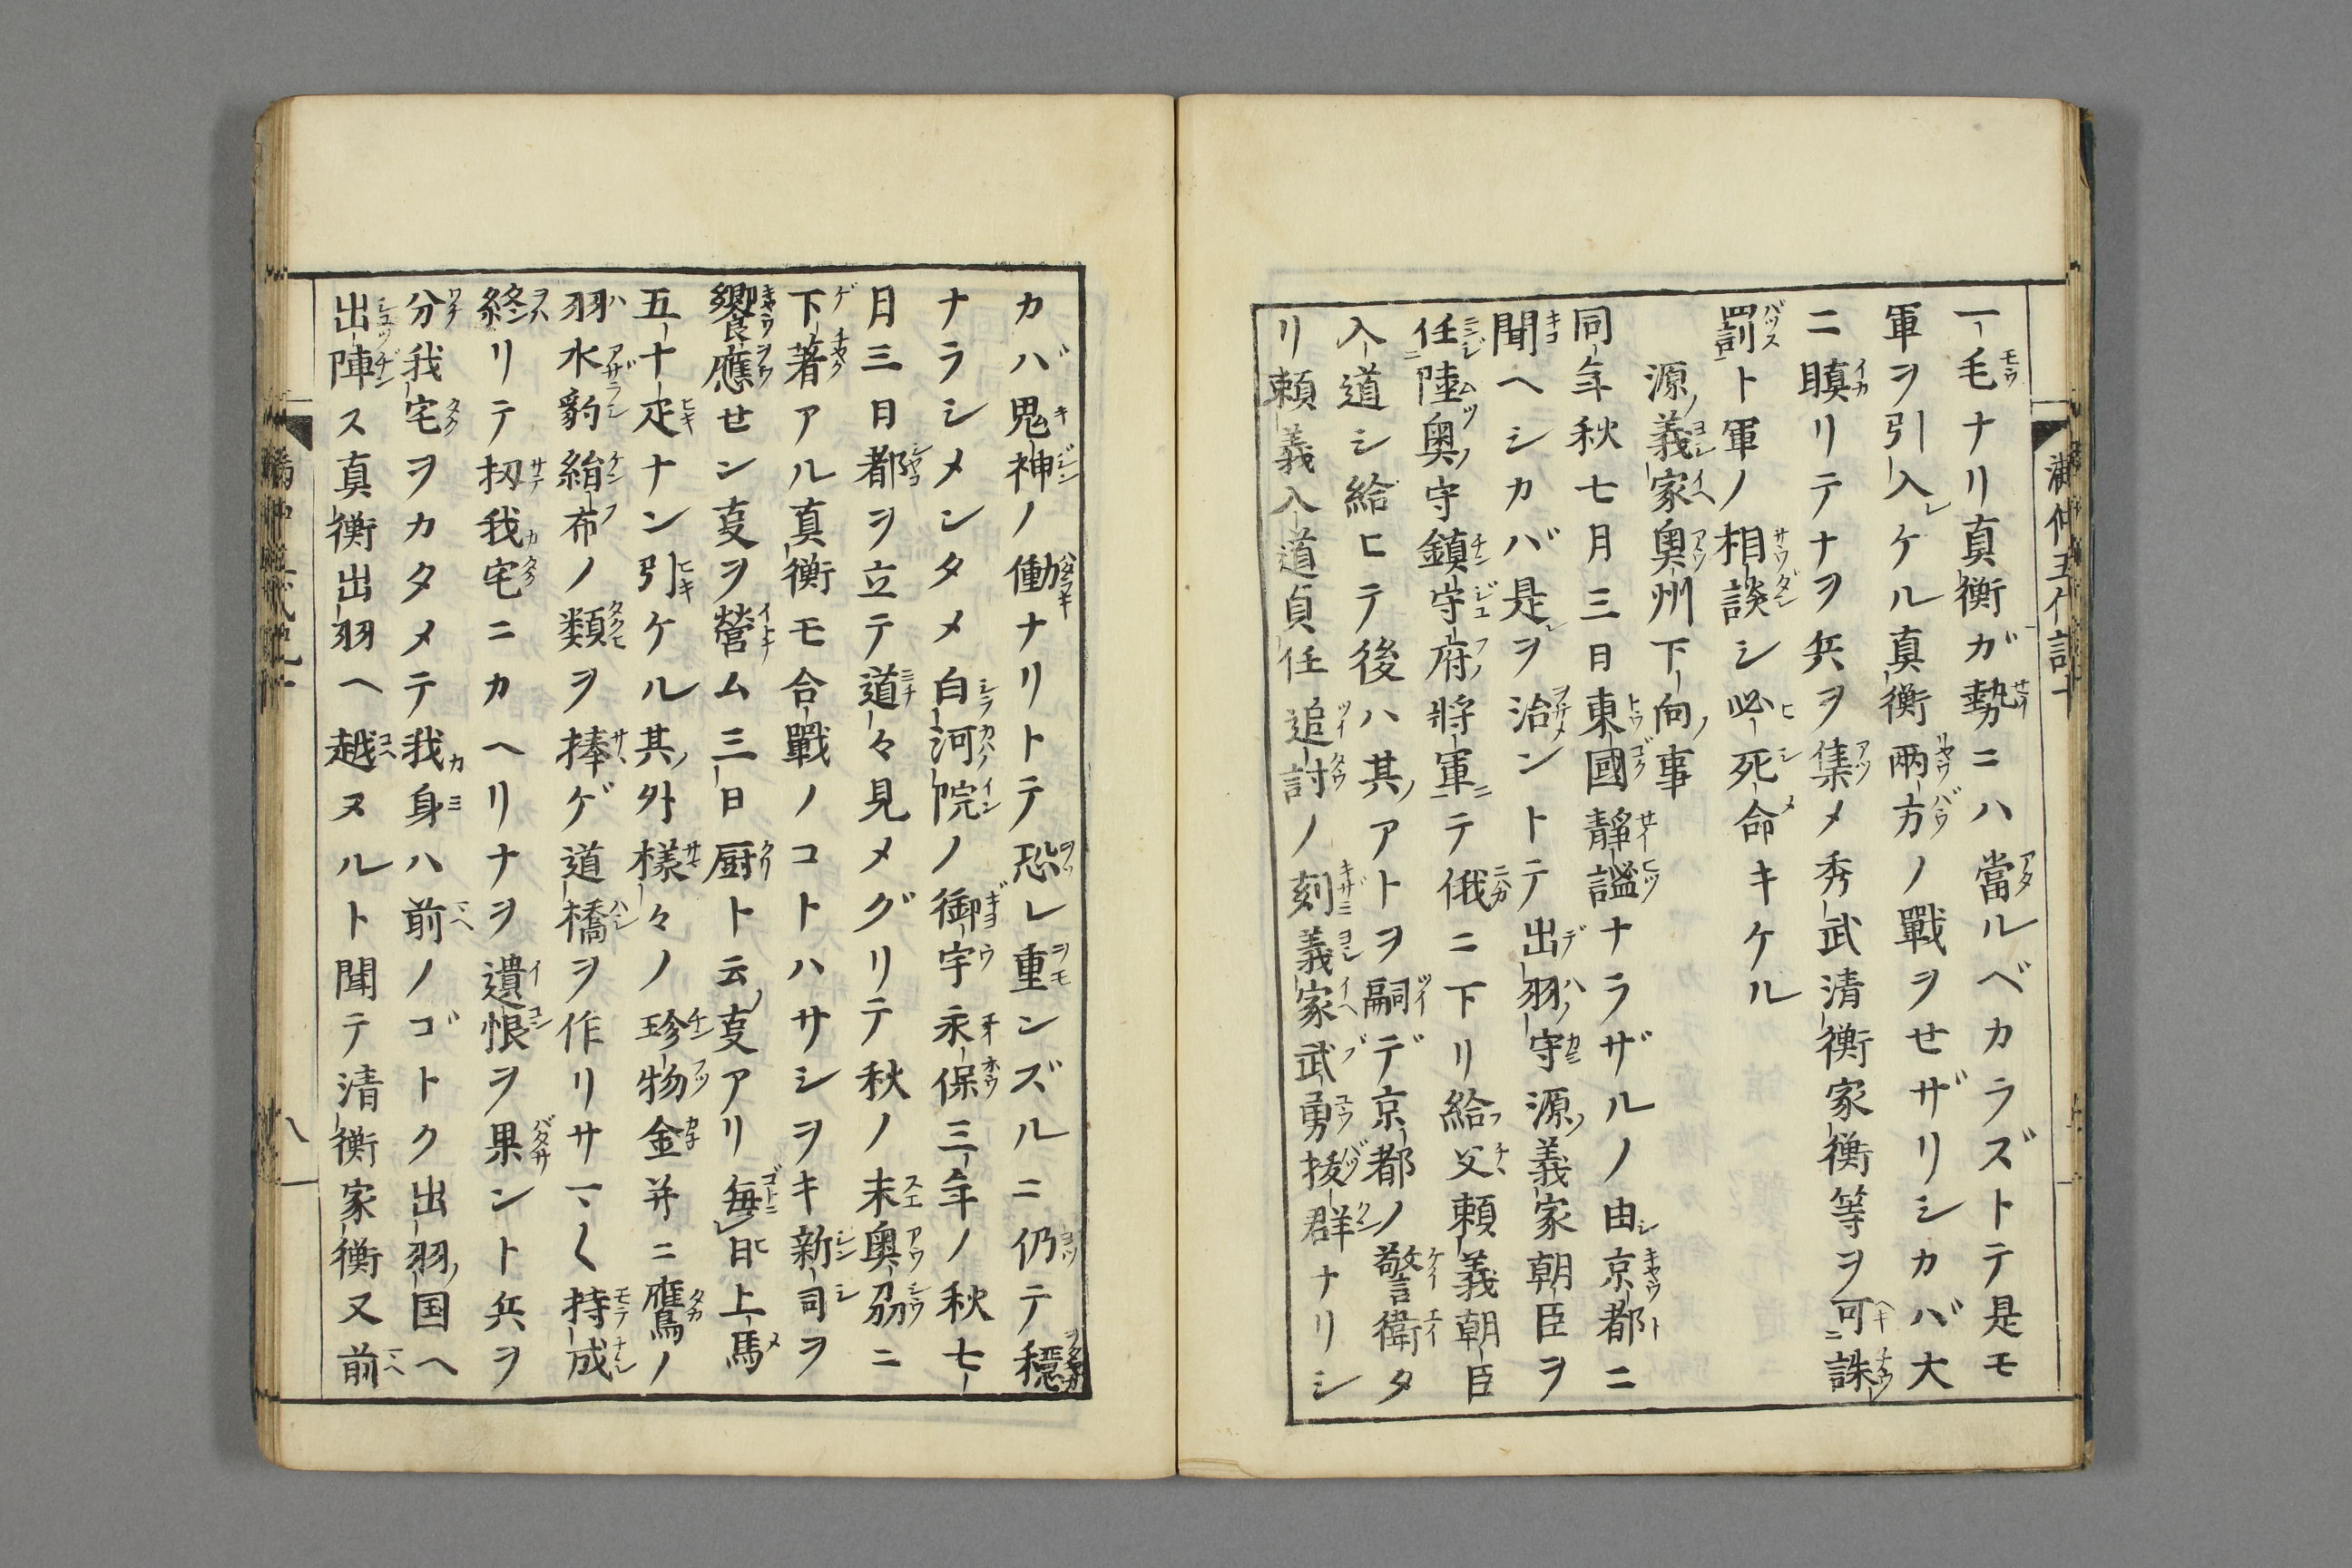 一毛ナリ真衡ガ勢ニハ當ルベカラズトテ是モ
軍ヲ引入ケル真衡兩方ノ戰ヲせザリシカバ大
ニ瞋リテナヲ兵ヲ集メ秀武清衡家衡等ヲ可誅
罰ト軍ノ相談シ必死命キケル
源義家奥州下向事
同年秋七月三日東國靜謐ナラザルノ由京都ニ
聞ヘシカバ是ヲ治ントテ出羽守源義家朝臣ヲ
任陸奥守鎮守府將軍テ俄ニ下リ給父頼義朝臣
入道シ給ヒテ後ハ其アトヲ嗣デ京都ノ警衛タ
リ頼義入道貞任追討ノ刻義家武勇抜群ナリシ
カバ鬼神ノ働ナリトテ恐レ重ンズルニ仍テ穏
ナラシメンタメ白河院ノ御宇永保三年ノ秋七
月三日都ヲ立テ道々見メグリテ秋ノ末奥刕ニ
下著アル真衡モ合戰ノコトハサシヲキ新司ヲ
饗應せン㕝ヲ營ム三日厨ト云㕝アリ毎日上馬
五十疋ナン引ケル其外樣々ノ珍物金并ニ鷹ノ
羽水豹絹布ノ類ヲ捧ゲ道橋ヲ作リサマ〱持成
終リテ扨我宅ニカヘリナヲ遺恨ヲ果ント兵ヲ
分我宅ヲカタメテ我身ハ前ノゴトク出羽国ヘ
出陣ス真衡出羽ヘ越ヌルト聞テ清衡家衡又前
八